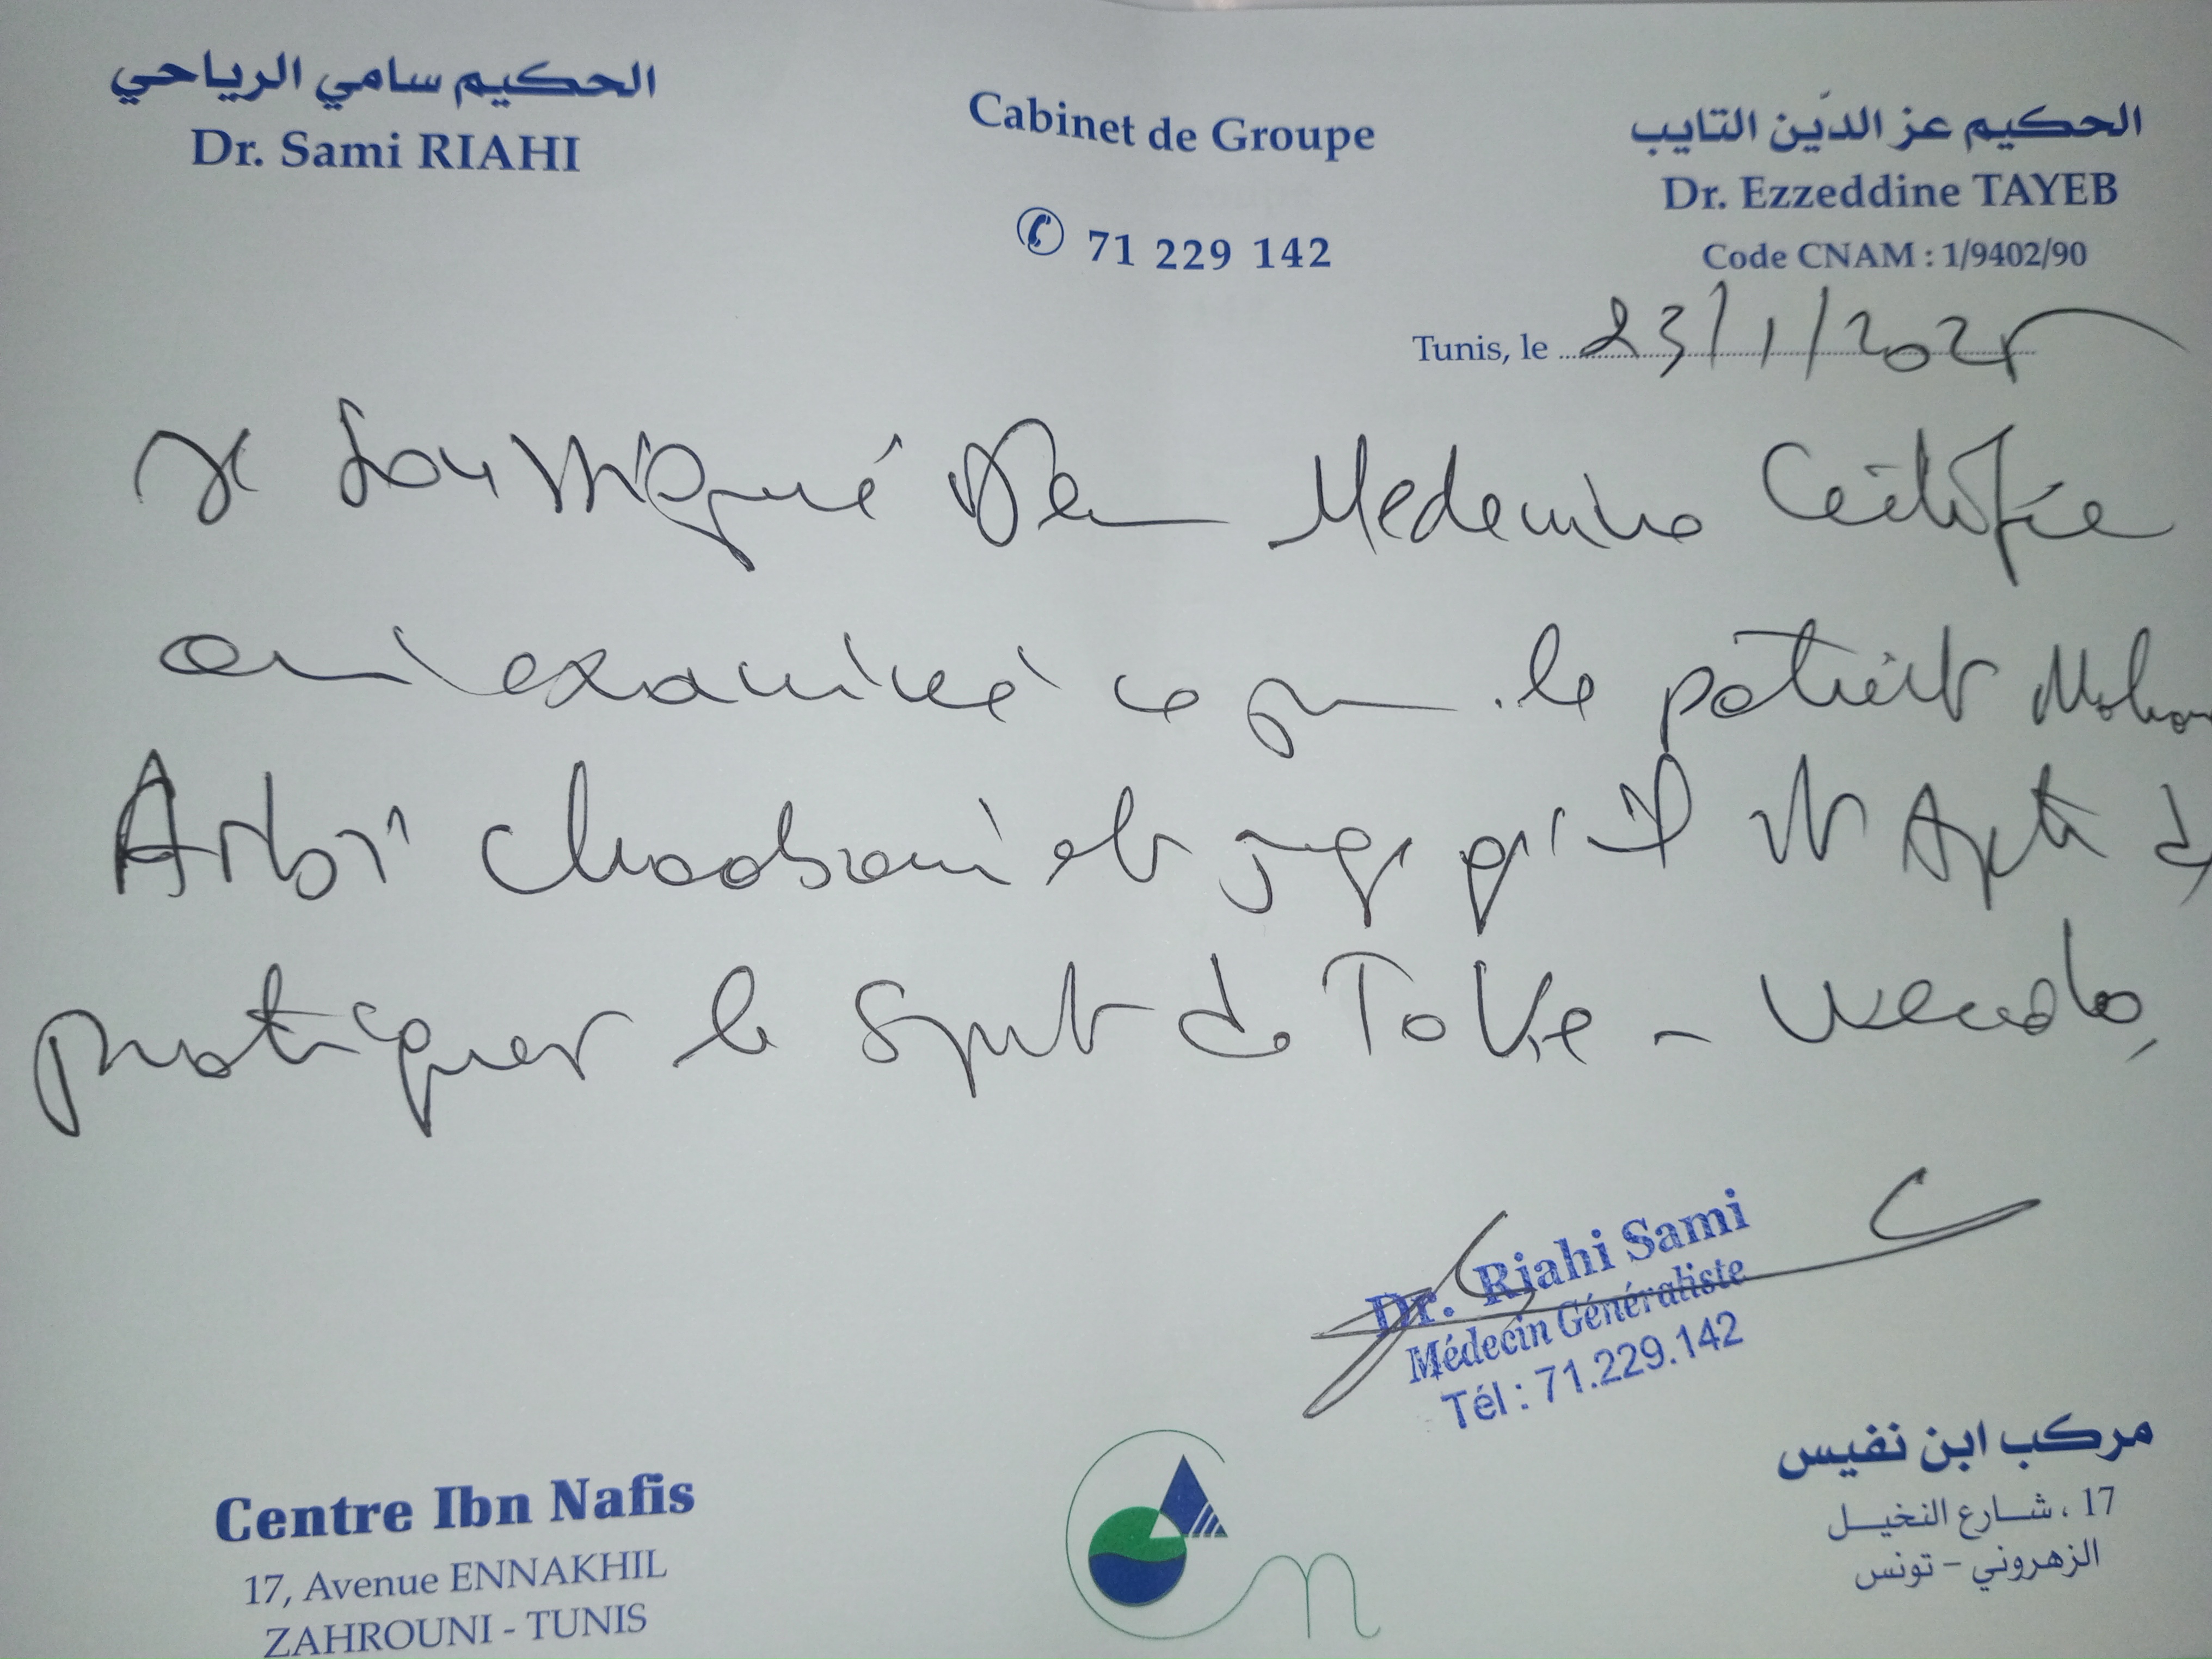 الحكيم سامي الرياحي
Dr. Sami RIAHI
Cabinet de Groupe
71 229 142
الحكيم عز الدّين التايب
Dr. Ezzeddine TAYEB
Code CNAM : 1/9402/90
Tunis, le 23/1/2025
Je soussigné Den Medecine Certifie
avoir examiné ce jour le patient Moham
Arbi Chaabani et juge qu'il est Apte à
pratiquer le sport de
Dr. Riahi Sami
Médecin Généraliste
Tél : 71.229.142
Centre Ibn Nafis
17, Avenue ENNAKHIL
ZAHROUNI - TUNIS
مركب ابن نفيس
17 ، شارع النخيل
الزهروني - تونس